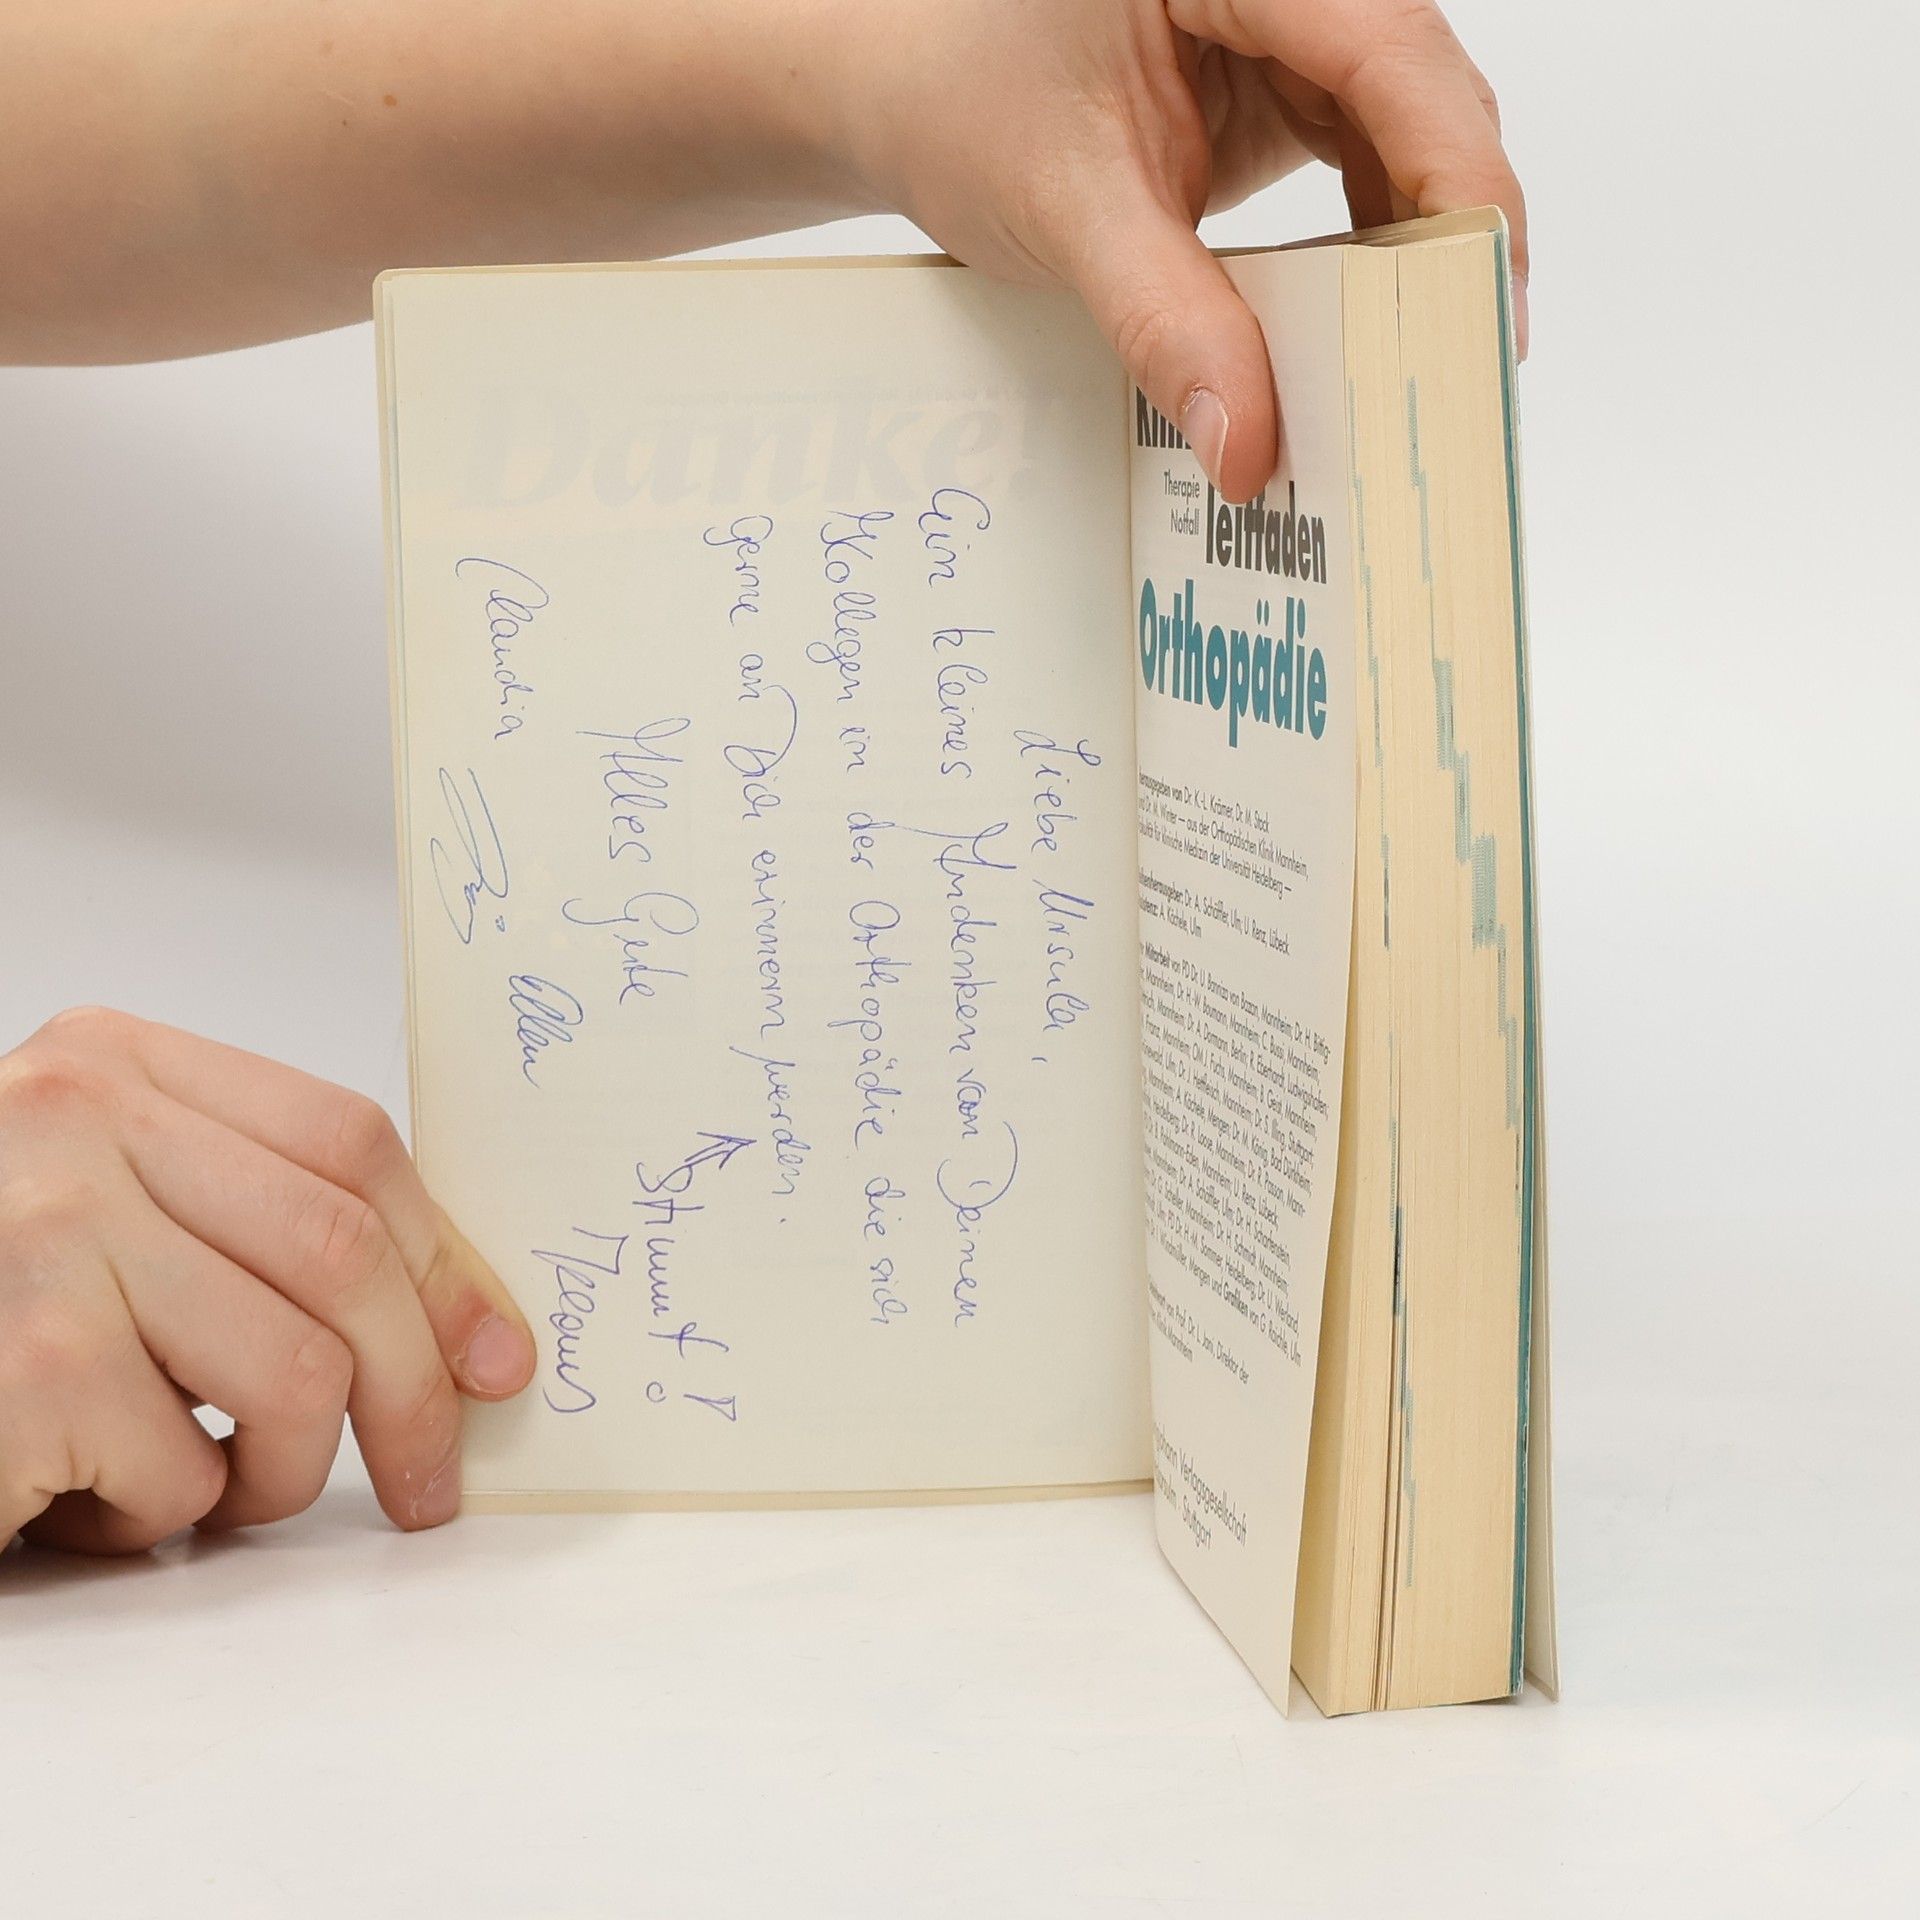 Danke
Liebe Ursula,
Ein kleines Andenken von Deinen
Kollegen in der Orthopädie die sich
gerne an Dich erinnern werden.
Stimmt!
Alles Gute
Klaus
Claudia
Therapie
Notfall
leitfaden
Orthopädie
herausgegeben von Dr. K.-L. Krämer, Dr. M. Stock
und Dr. M. Winter — aus der Orthopädischen Klinik Mannheim,
Fakultät für klinische Medizin der Universität Heidelberg —
Reihenherausgeber: Dr. A. Schäffler, Ulm; U. Renz, Lübeck
A. Kächele, Ulm
Mitarbeit von PD Dr. U. Banniza von Bazan, Mannheim; Dr. H.
Mannheim; Dr. H.-W. Baumann, Mannheim; C. Bussi, Mannheim;
Mannheim; Dr. A. Dormann, Berlin; R. Eberhardt, Ludwigshafen;
Franz, Mannheim; OM J. Fuchs, Mannheim; B. Geist, Mannheim;
Ulm; Dr. J. Heitfleisch, Mannheim; Dr. S. Illing, Stuttgart;
Mannheim; A. Kächele, Mengen; Dr. M. König, Bad Dürkheim;
Heidelberg; Dr. R. Loose, Mannheim; Dr. R. Passon,
Dr. B. Pohlmann-Eden, Mannheim; U. Renz, Lübeck;
Mannheim; Dr. A. Schäffler, Ulm; Dr. H. Scharfenstein,
Dr. G. Scheller, Mannheim; Dr. H. Schmidt, Mannheim;
Ulm; PD Dr. H.-M. Sommer, Heidelberg; Dr. U. Weiland,
Windmüller, Mengen und Grafiken von G. Raichle, Ulm
von Prof. Dr. L. Jani, Direktor der
Klinik Mannheim
Verlagsgesellschaft
Stuttgart